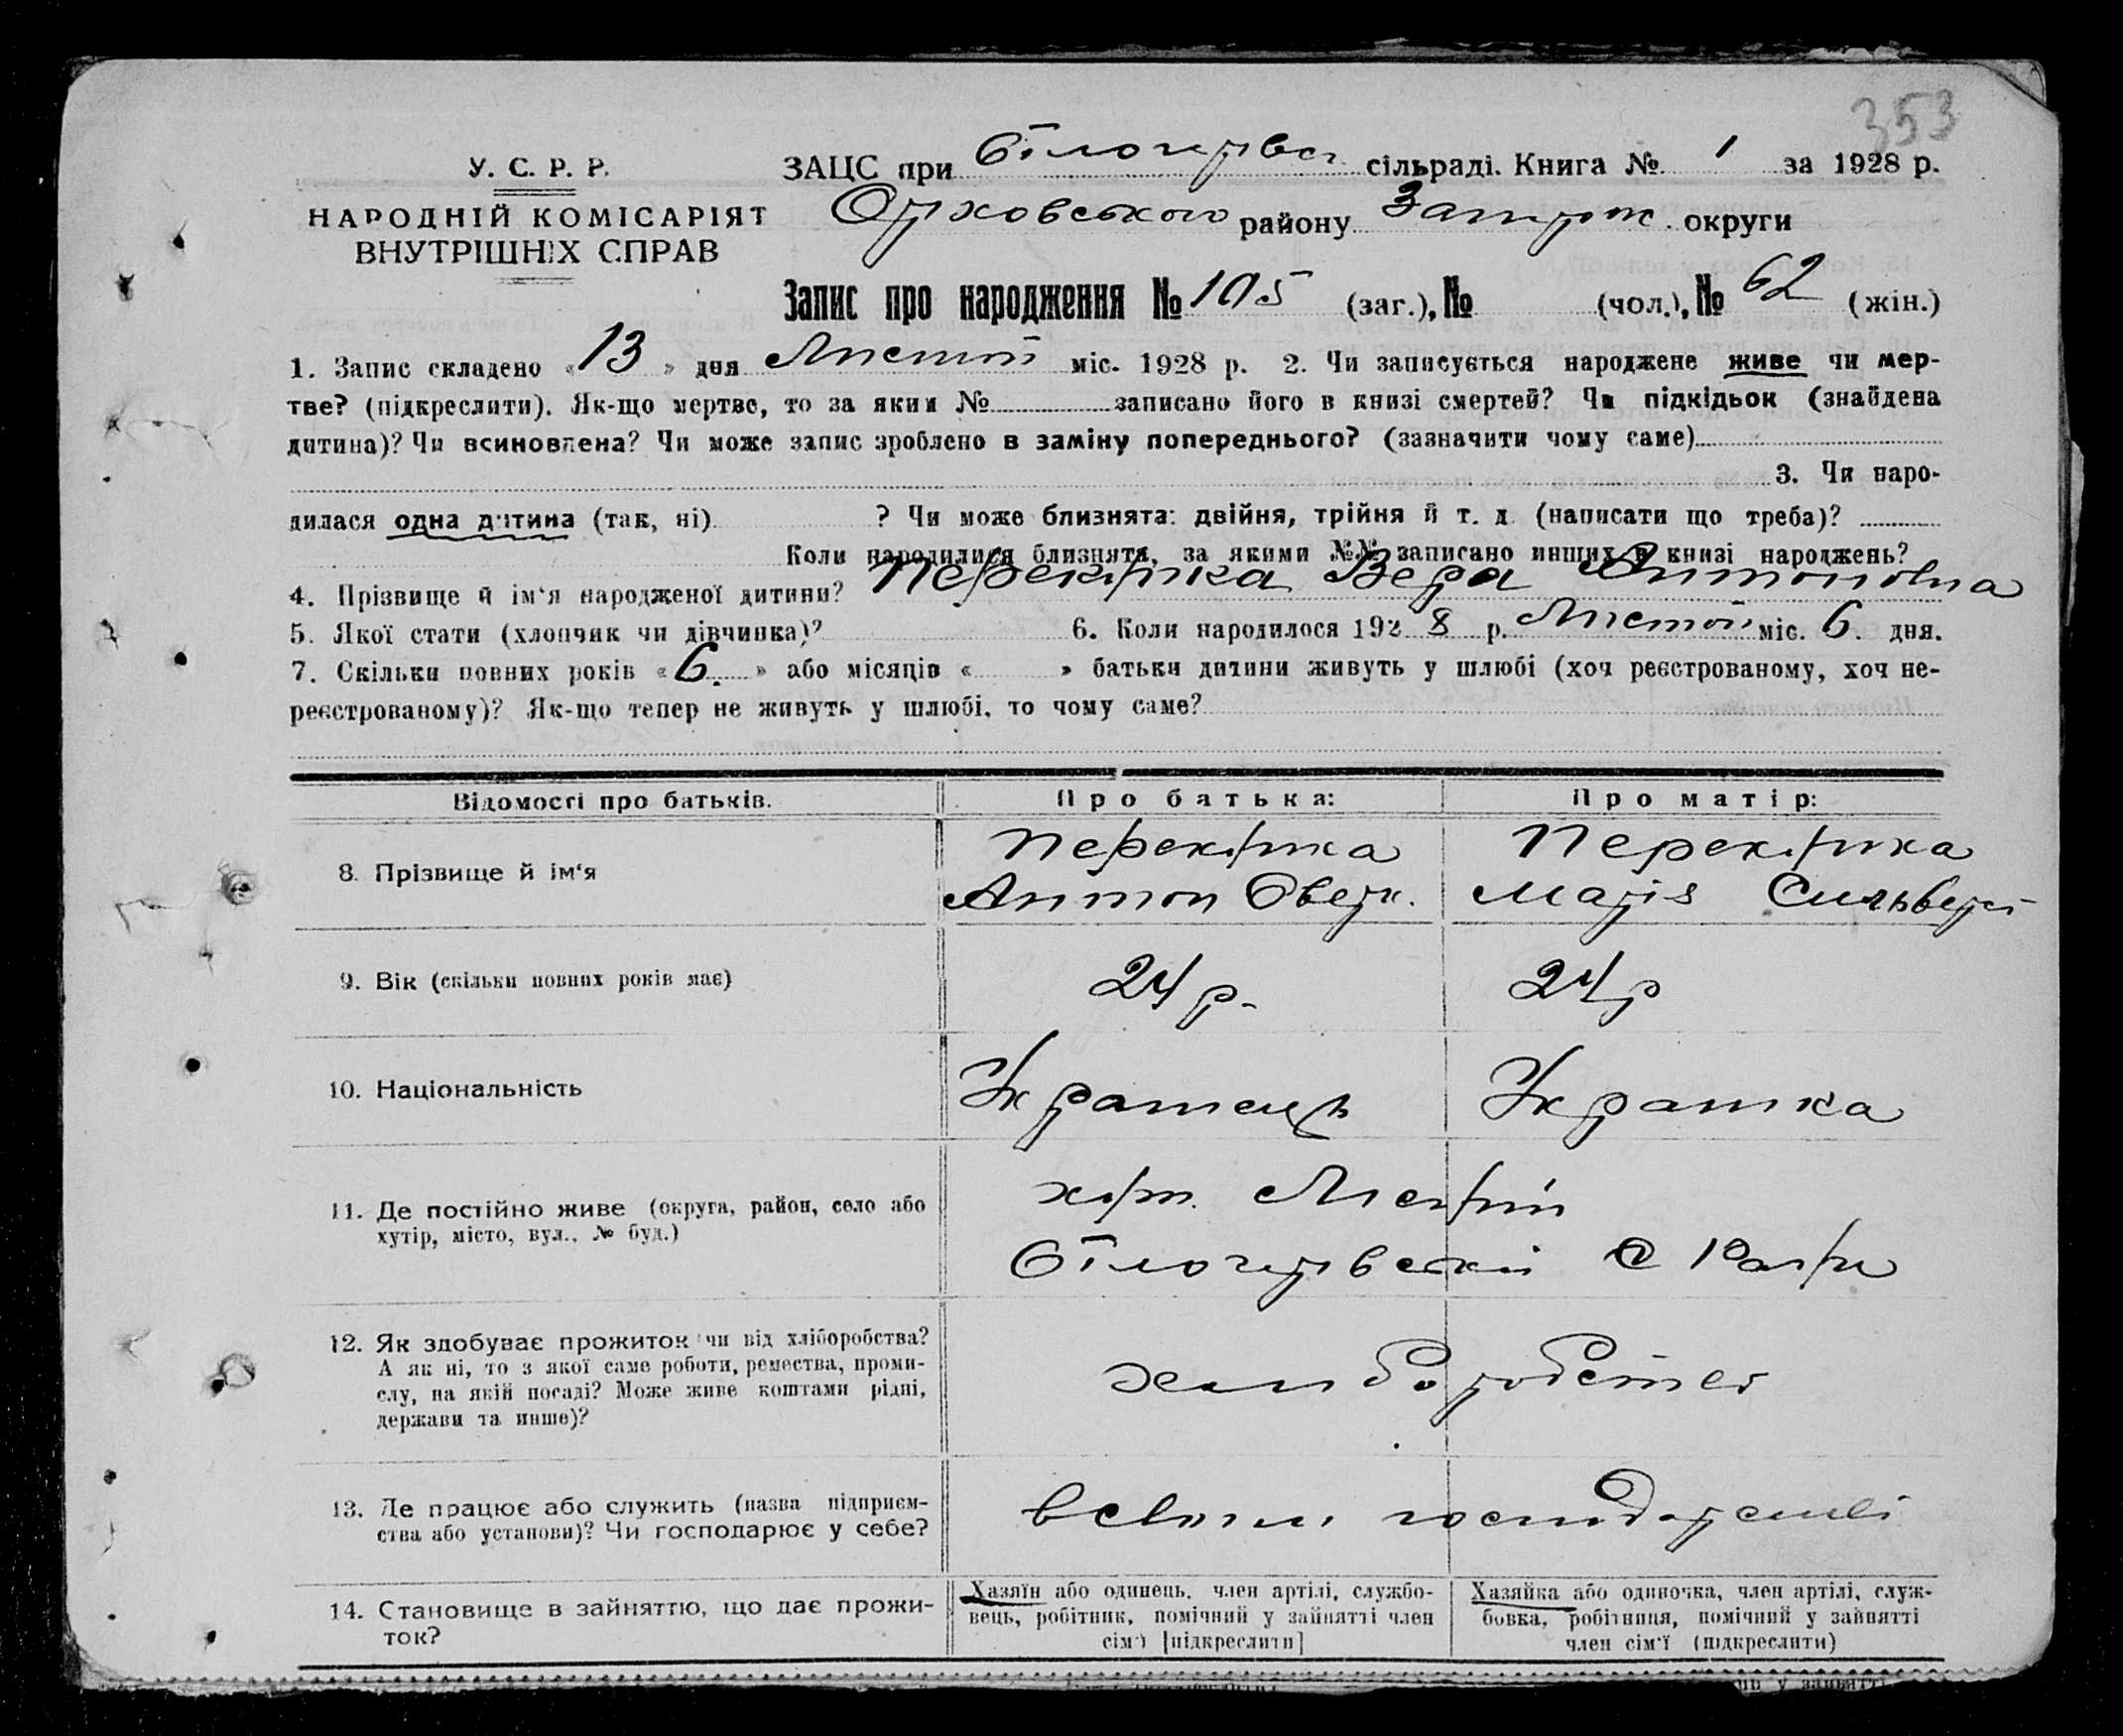 353
У. С. Р. Р.
ЗАЦС при Білогирівс. сільраді. Книга № 1 за 1928 р.
НАРОДНІЙ КОМІСАРІЯТ
ВНУТРІШНІХ СПРАВ
Оріховського району Запоріж. округи
Запис про народження № 105 (заг.), № (чол.), № 62 (жін.)
1. Запис складено «13» дня міс. 1928 р. 2. Чи записується народжене живе чи мер-
тве? (підкреслити). Як-що мертве, то за яким № записано його в книзі смертей? Чи підкідьок (знайдена
дитина)? Чи всиновлена? Чи може запис зроблено в заміну попереднього? (зазначити чому саме)
3. Чи наро-
дилася одна дитина (так, ні) ? Чи може близнята: двійня, трійня й т. д. (написати що треба)?
Коли народилися близнята, за якими №№ записано инших в книзі народжень?
4. Прізвище й ім'я народженої дитини? Перекрутка Вера Антоновна
5. Якої стати (хлопчик чи дівчинка)? 6. Коли народилося 1928 р. міс. 6. дня.
7. Скільки повних років «6.» або місяців « » батьки дитини живуть у шлюбі (хоч реєстрованому, хоч не-
реєстрованому)? Як-що тепер не живуть у шлюбі, то чому саме?
Відомості про батьків. Про батька: Про матір:
8. Прізвище й ім'я
Антон Оверк. Марія Сильверст
9. Вік (скільки повних років має) 24 р. 24 р
10. Національність Украинець Украинка
11. Де постійно живе (округа, район, село або
хутір, місто, вул., № буд.)
12. Як здобуває прожиток чи від хліборобства?
А як ні, то з якої саме роботи, ремества, проми-
слу, на якій посаді? Може живе коштами рідні,
держави та инше)?
13. Де працює або служить (назва підприєм-
ства або установи)? Чи господарює у себе?
14. Становище в зайняттю, що дає прожи-
ток?
Хазяїн або одинець, член артілі, службо-
вець, робітник, помічний у зайнятті член
сім'ї [підкреслити]
Хазяйка або одиночка, член артілі, служ-
бовка, робітниця, помічний у зайнятті
член сім'ї (підкреслити)